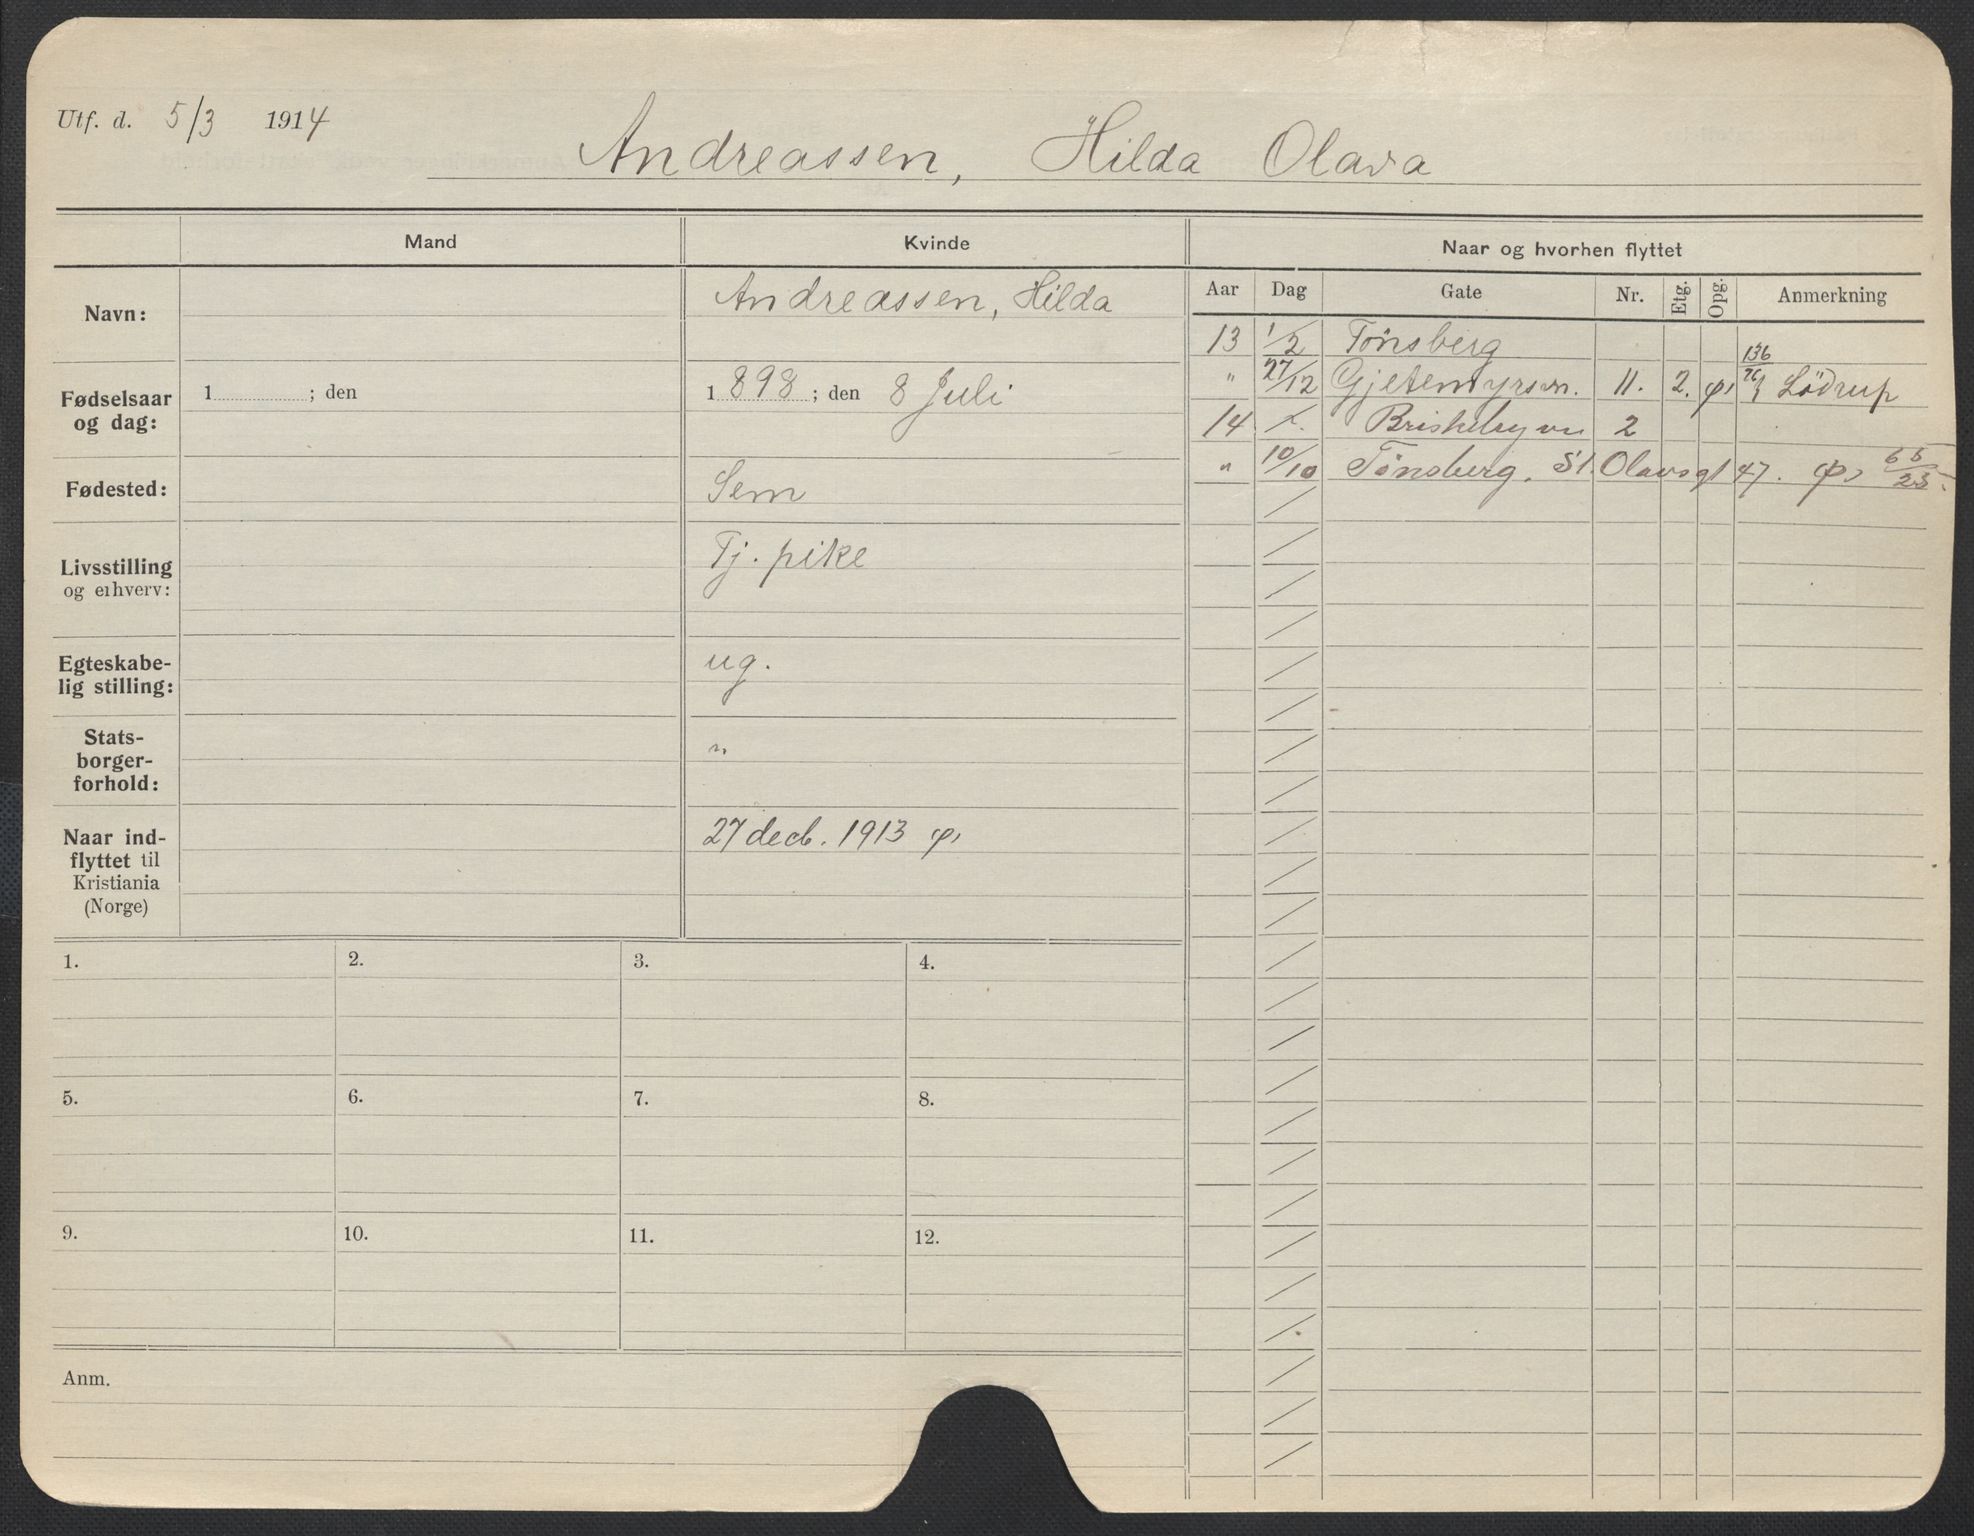 Utf. d. 5/3 1914
Andreassen, Hilda Olava
Mand
Kvinde
Naar og hvorhen flyttet
Aar Dag Gate Nr. Etg. Opg. Anmerkning
Navn:
Andreassen, Hilda
Fødselsaar og dag:
1 ; den
1898 ; den 8 Juli
Fødested:
Sem
Livsstilling og erhverv:
Tj. pike
Egteskabelig stilling:
ug.
Statsborgerforhold:
"
Naar indflyttet til Kristiania (Norge)
27 decb. 1913
13 1/2 Tønsberg
" 27/12 Gjetemyrsvn. 11. 2. 136 Lödrup
14 Briskebyvn 2
" 10/10 Tønsberg. St. Olavsgt 47. 65/23
1. 2. 3. 4.
5. 6. 7. 8.
9. 10. 11. 12.
Anm.